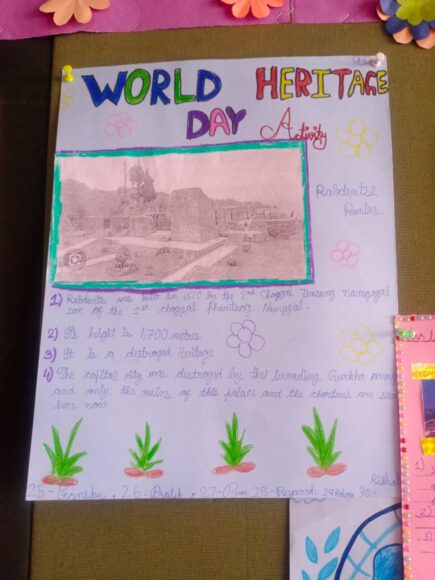 WORLD HERITAGE
DAY Activity
Rabdentse
Ruins.
1) Rabdents was built in 1670 by the 2nd Chogyal Tensung namgayal
son of the 1st chogyal Phuntsog Namgyal.
2) Its height is 1,700 metres
3) It is a destroyed Heritage
4) The capital city was destroyed by the Invading Gurkha
and only the ruins of this palace and the chortens are
here now
25- 26- Pratik, 27- 28- Reyansh 29 30-
1)
2)
3)